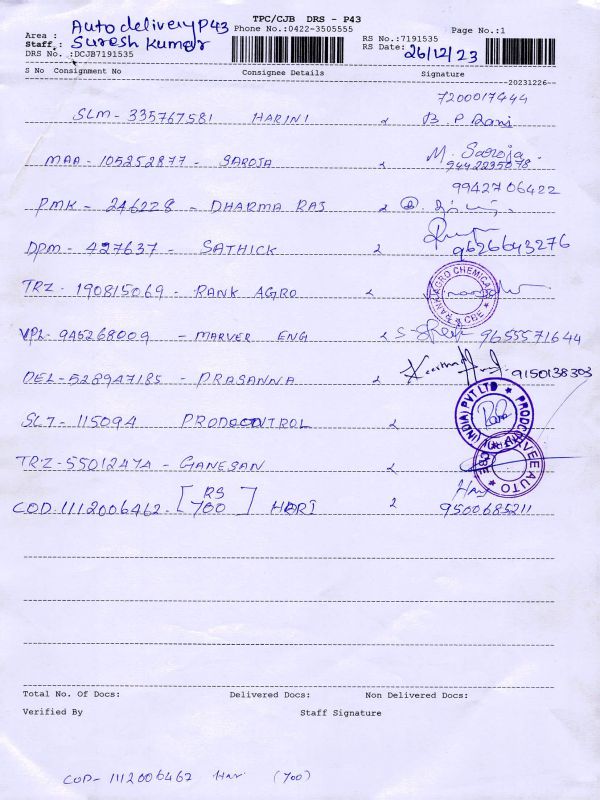 TPC/CJB DRS - P43
Area : Auto delivery P43 Phone No.:0422-3505555 Page No.:1
Staff : Suresh Kumar RS No.:7191535
DRS No. :DCJB7191535 RS Date: 26/12/23
S No Consignment No Consignee Details Signature
20231226
7200017444
SLM - 335767581 HARINI B. P Rani
MAA - 105252877 - SAROJA M. Saroja
9442235078.
9942706422
PMK - 246228 - DHARMA RAJ
DPM - 427637 - SATHICK 9626643276
TRZ - 190815069 - RANK AGRO RANK AGRO CHEMICAL CBE
VPL - 945268009 - MARVER ENG 9655571644
DEL - 528947185 - PRASANNA 9150138303
SLT - 115094 PRODCONTROL (INDIA) PVT LTD
TRZ - 5501247A - GANESAN VEE AUTO CBE
COD. 1112006462 - [RS 700] HARI Hari
9500685211
Total No. Of Docs: Delivered Docs: Non Delivered Docs:
Verified By Staff Signature
COD - 1112006462 Hari (700)